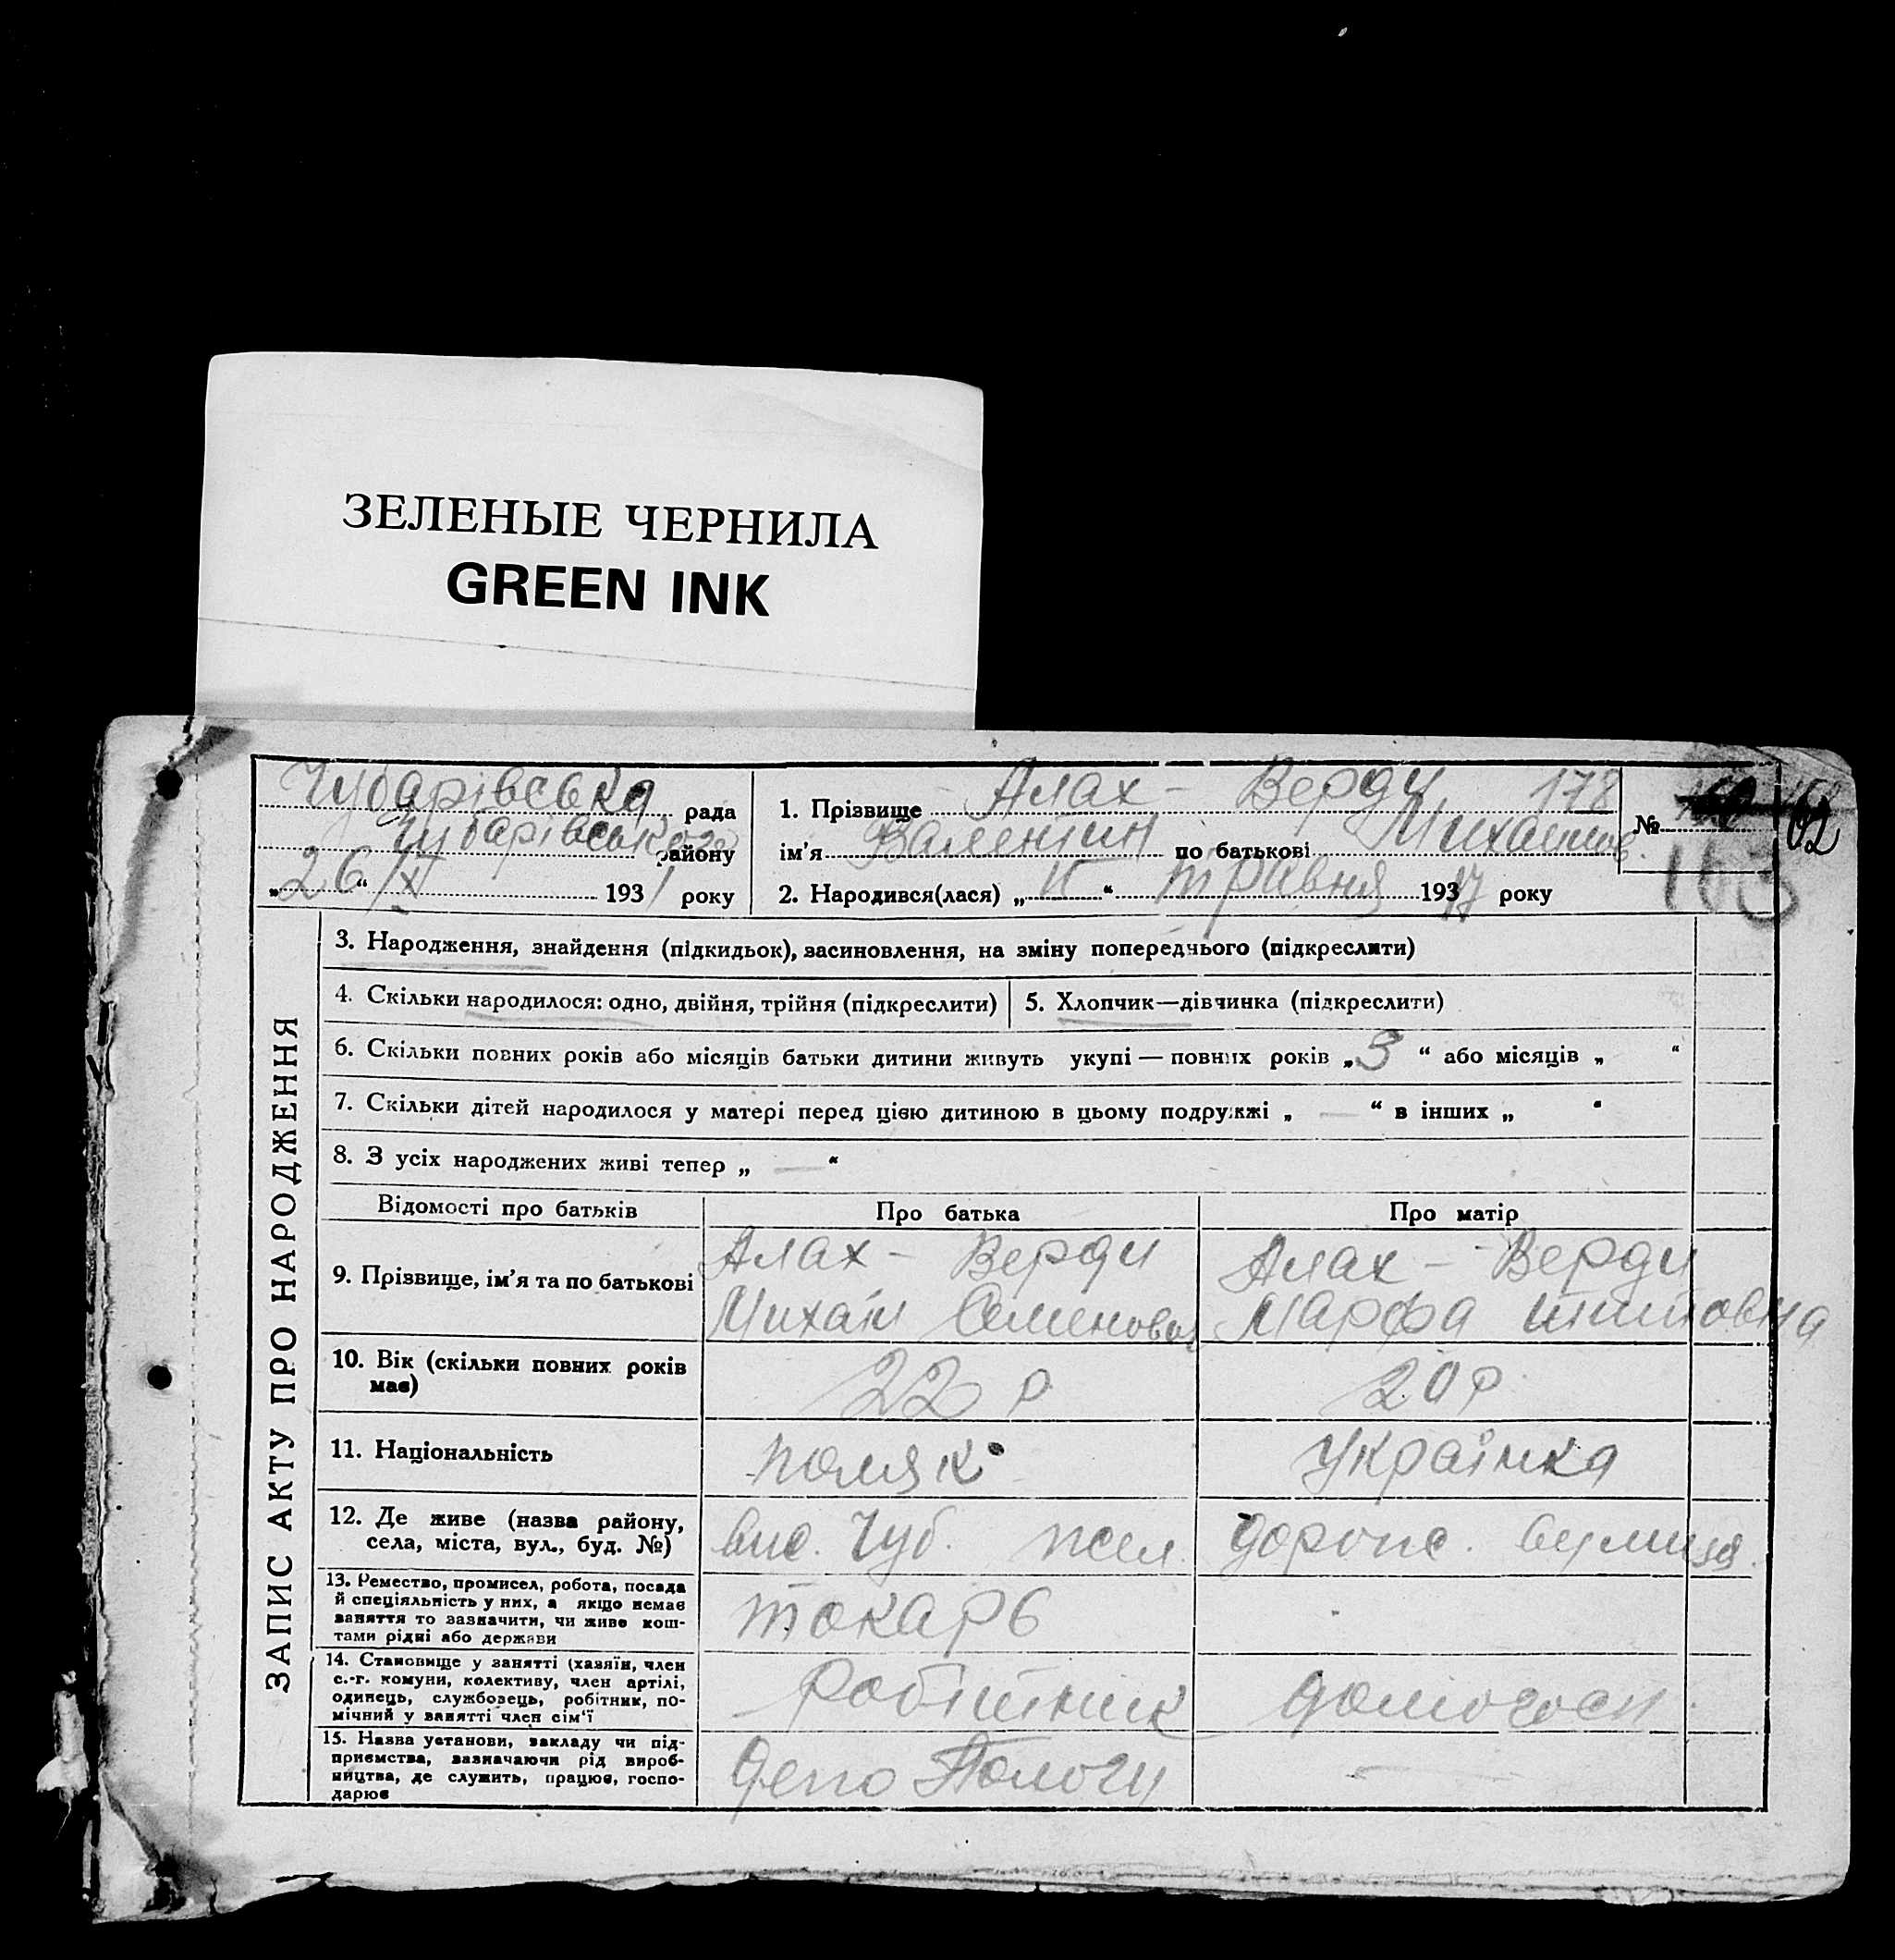 ЗЕЛЕНЫЕ ЧЕРНИЛА
GREEN INK
Чубарівська рада
Чубарівського району
„26“ XI 1931 року
1. Прізвище Алах - Верди 178
ім’я Валентин по батькові Михайлов.
2. Народився(лася) „ “ травня 193 року
№ 162
163
ЗАПИС АКТУ ПРО НАРОДЖЕННЯ
3. Народження, знайдення (підкидьок), засиновлення, на зміну попереднього (підкреслити)
4. Скільки народилося: одно, двійня, трійня (підкреслити)
5. Хлопчик—дівчинка (підкреслити)
6. Скільки повних років або місяців батьки дитини живуть укупі — повних років „3“ або місяців „ “
7. Скільки дітей народилося у матері перед цією дитиною в цьому подружжі „ — “ в інших „ “
8. З усіх народжених живі тепер „ — “
Відомості про батьків
Про батька
Про матір
9. Прізвище, ім’я та по батькові
Алах - Верди
Михайл Семенович
Алах - Верди
Марфа Титовна
10. Вік (скільки повних років
має)
22 р
20 р
11. Національність
поляк
Українка
12. Де живе (назва району,
села, міста, вул., буд. №)
Чуб. псел.
вулиця
13. Ремество, промисел, робота, посада
й спеціяльність у них, а якщо немає
заняття то зазначити, чи живе кош-
тами рідні або держави
токарь
14. Становище у занятті (хазяїн, член
с.-г. комуни, колективу, член артілі,
одинець, службовець, робітник, по-
мічний у занятті член сім’ї
робітник
домогосп
15. Назва установи, закладу чи під-
приємства, зазначаючи рід вироб-
ництва, де служить, працює, госпо-
дарює
Депо Пологи
—